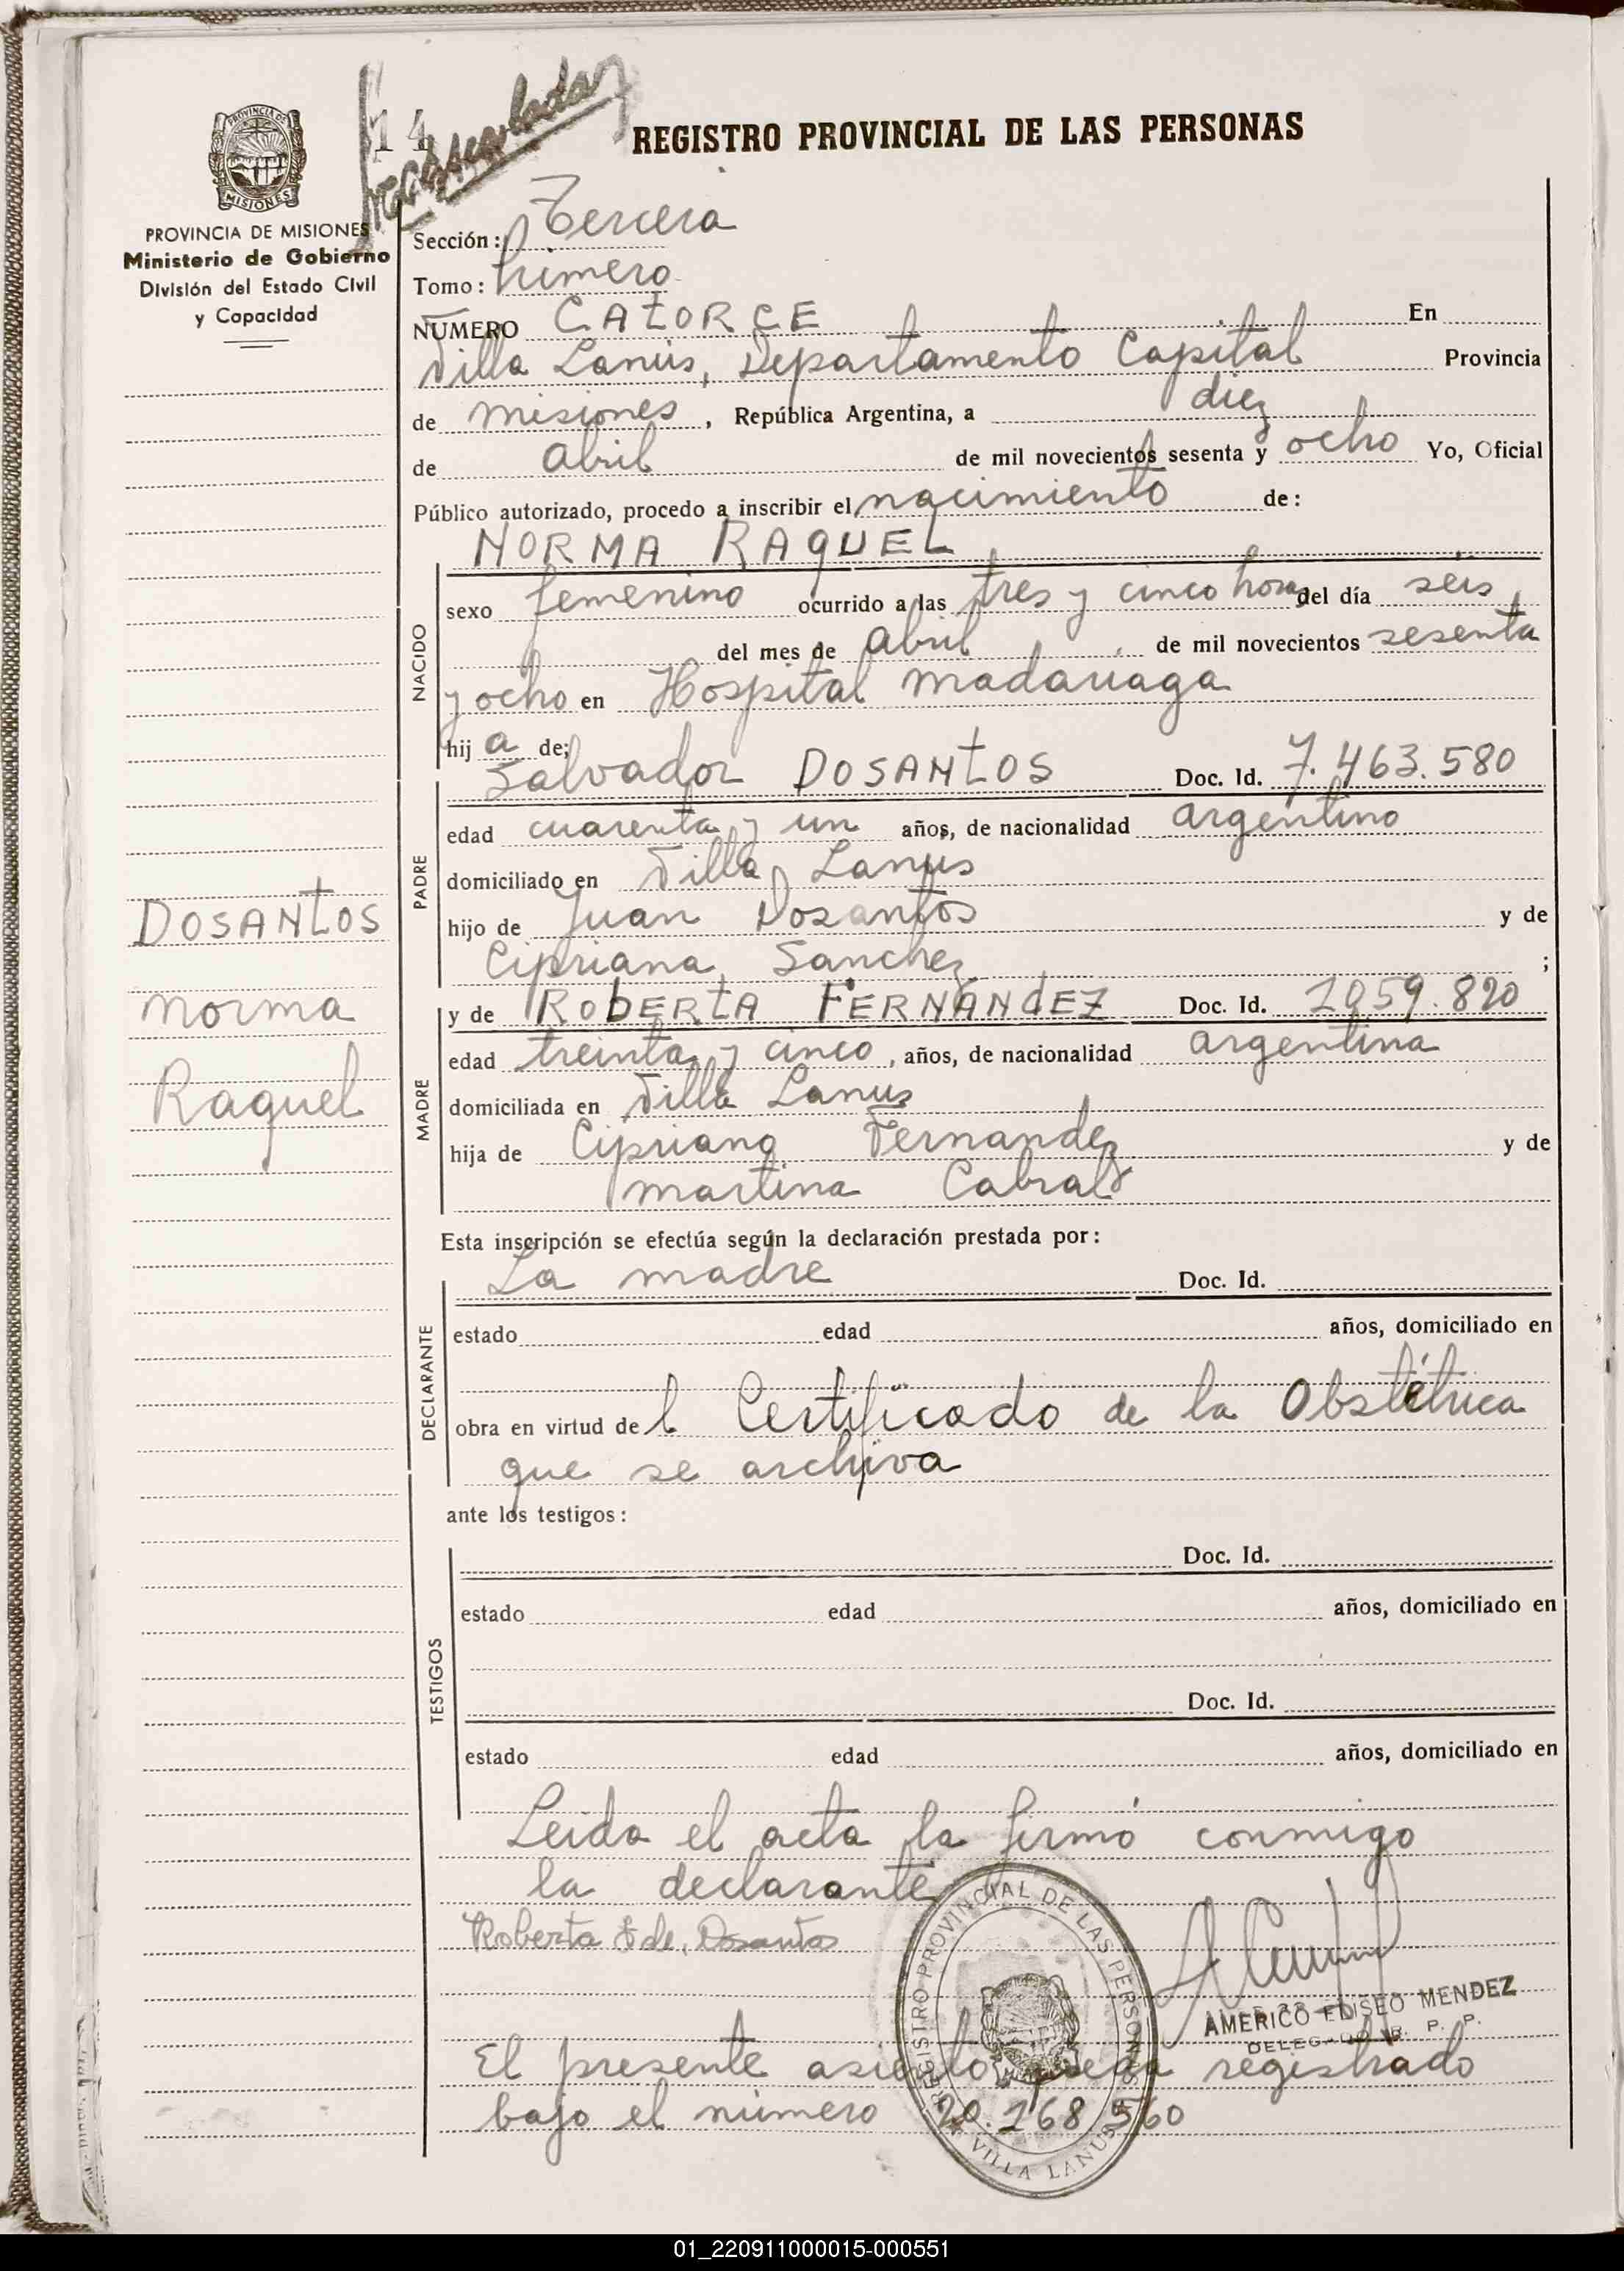 14
REGISTRO PROVINCIAL DE LAS PERSONAS
PROVINCIA DE MISIONES
MISIONES
PROVINCIA DE MISIONES
Ministerio de Gobierno
División del Estado Civil
y Capacidad
Sección: Tercera
Tomo: Primero
NUMERO CATORCE En
Villa Lanús, Departamento Capital Provincia
de Misiones, República Argentina, a diez
de Abril de mil novecientos sesenta y ocho Yo, Oficial
Público autorizado, procedo a inscribir el nacimiento de:
NORMA RAQUEL
NACIDO
sexo femenino ocurrido a las tres y cinco horas del día seis
del mes de Abril de mil novecientos sesenta
y ocho en Hospital Madariaga
hij a de;
Salvador DOSANTOS Doc. Id. 7.463.580
PADRE
edad cuarenta y un años, de nacionalidad argentino
domiciliado en Villa Lanus
hijo de Juan Dosantos y de
Cipriana Sanchez ;
DOSANTOS
Norma
Raquel
MADRE
y de ROBERTA FERNÁNDEZ Doc. Id. 1059.820
edad treinta y cinco, años, de nacionalidad argentina
domiciliada en Villa Lanus
hija de Cipriano Fernandez y de
Martina Cabral
Esta inscripción se efectúa según la declaración prestada por:
La madre Doc. Id.
DECLARANTE
estado edad años, domiciliado en
obra en virtud de l Certificado de la Obstétrica
que se archiva
ante los testigos:
TESTIGOS
Doc. Id.
estado edad años, domiciliado en
Doc. Id.
estado edad años, domiciliado en
Leida el acta la firmó conmigo
la declarante
Roberta F de Dosantos
REGISTRO PROVINCIAL DE LAS PERSONAS
VILLA LANUS
AMERICO ELISEO MENDEZ
DELEGADO R. P. P.
El presente asiento queda registrado
bajo el número 20.168.560
01_220911000015-000551